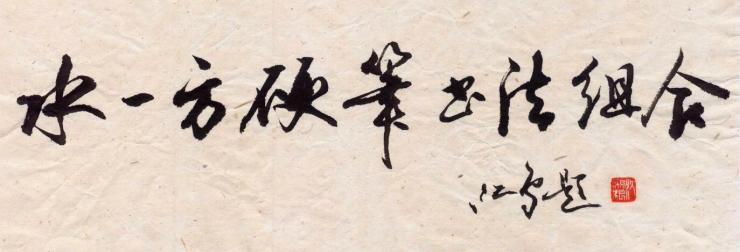 水一方硬筆书法组合
江鸟题